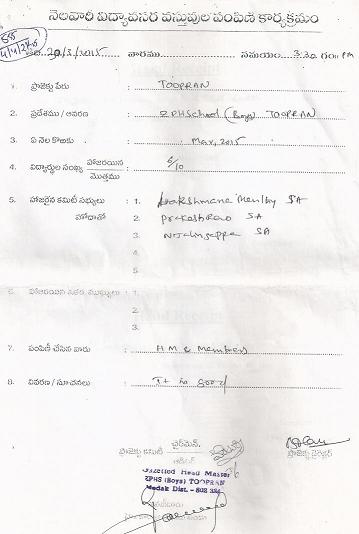 నెలవారి విద్యావసర వస్తువుల పంపిణి కార్యక్రమం
వారము సమయం 3.20 గం. PM
1. ప్రాజెక్టు పేరు : TOOPRAN
2. ప్రదేశము / ఆవరణ : ZPHSchool (Boys) TOOPRAN
3. ఏ నెల కొరకు : May, 2015
4. విద్యార్థుల సంఖ్య హాజరయిన 6/10
మొత్తము
5. హాజరైన కమిటీ సభ్యులు : 1. SA
హోదాతో 2. PrakashRao SA
3. SA
4.
5.
6. హాజరయిన ఇతర ముఖ్యులు : 1.
2.
3.
7. పంపిణీ చేసిన వారు : HM & Members
8. వివరణ / సూచనలు : good
ప్రాజెక్టు కమిటీ ఛైర్మెన్. ప్రాజెక్టు డైరెక్టర్
Gazetted Head Master
ZPHS (Boys) TOOPRAN
Medak Dist. - 502 334